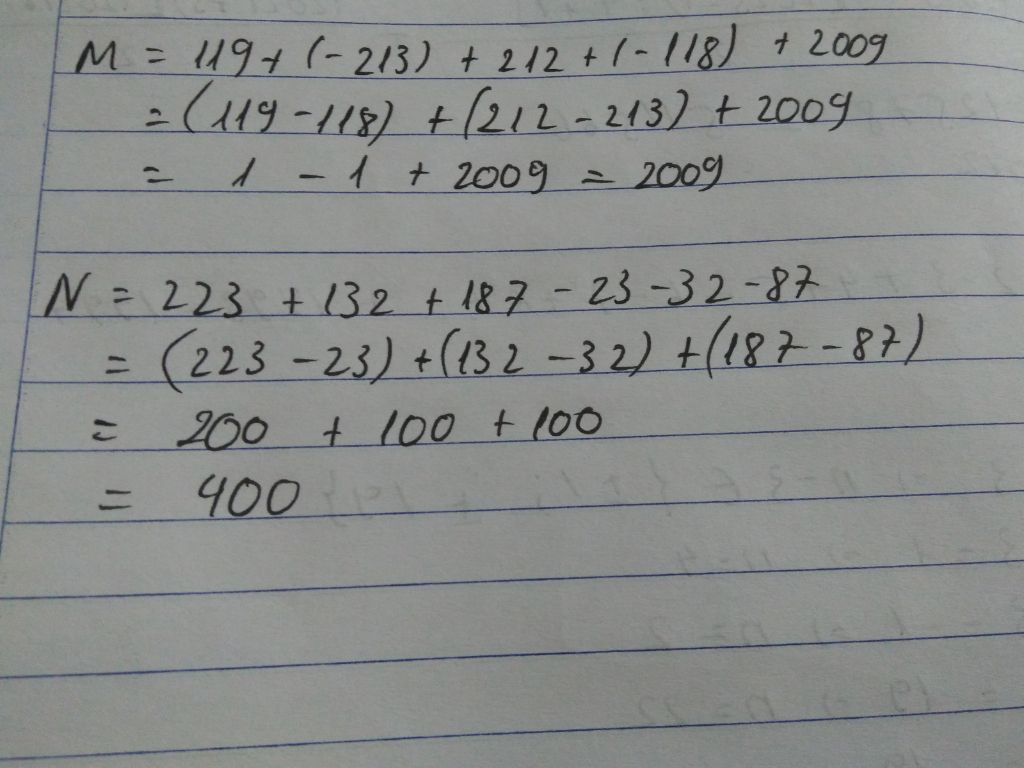 M = 119 + (-213) + 212 + (-118) + 2009
= (119 - 118) + (212 - 213) + 2009
= 1 - 1 + 2009 = 2009
N = 223 + 132 + 187 - 23 - 32 - 87
= (223 - 23) + (132 - 32) + (187 - 87)
= 200 + 100 + 100
= 400